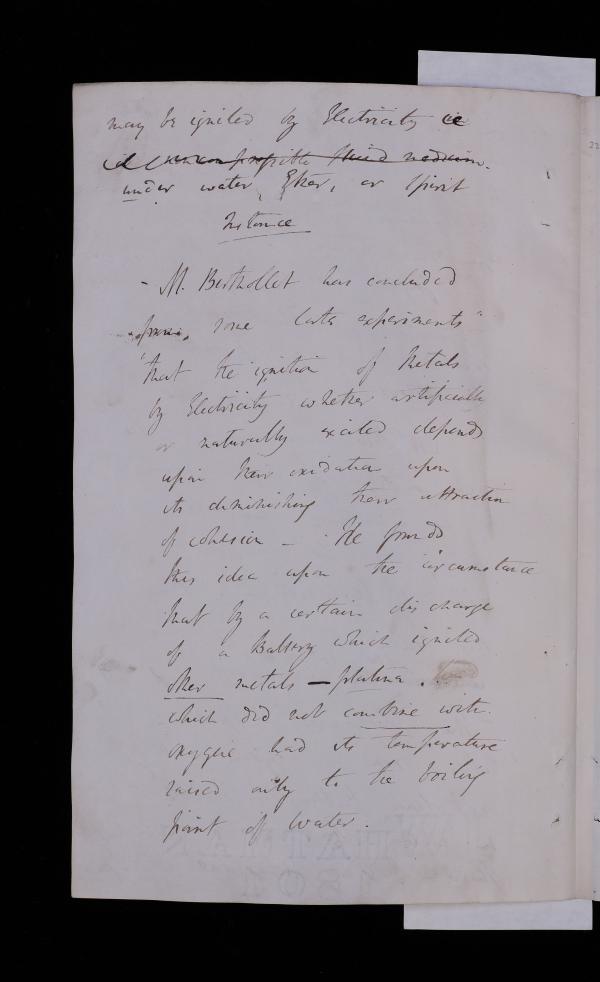 may be ignited by Electricity ie
uncompressible fluid medium.
under water, Ether, or Spirit
Instance
- M. Berthollet has concluded
from, some late experiments"
"that the ignition of Metals
by Electricity whether artificially
or naturally excited depends
upon their oxidation upon
its diminishing their attraction
of cohesion - He founds
this idea upon the circumstance
that by a certain discharge
of a Battery which ignited
other metals — platina.
which did not combine with
oxygene had its temperature
raised only to the boiling
point of water.